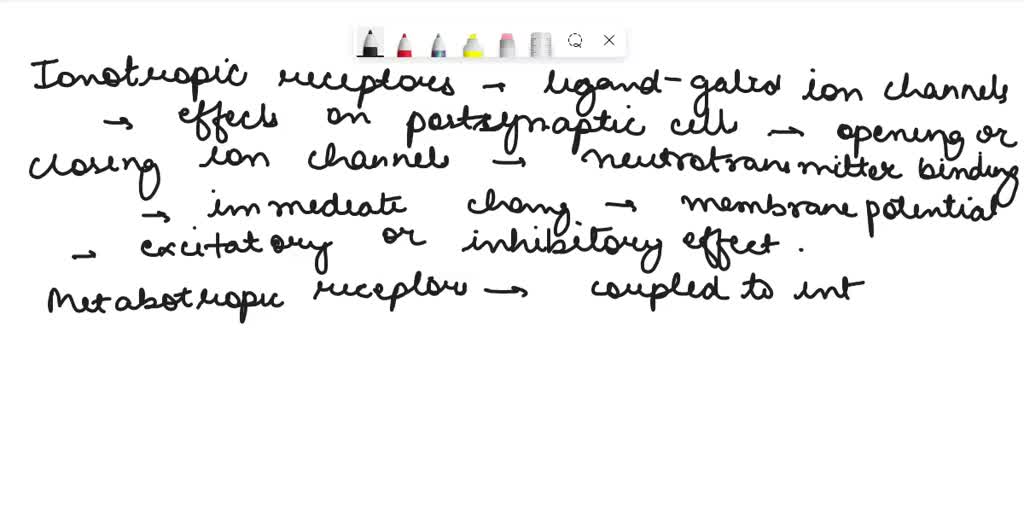 Ionotropic receptors → ligand-gated ion channels
→ effects on postsynaptic cell → opening or
closing ion channels → neutrotransmitter binding
→ immediate chang. → membrane potential
→ excitatory or inhibitory effect.
Metabotropic receptors → coupled to int